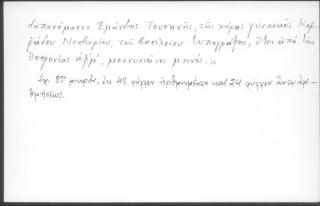 δαπανήμασιν Ἐμόνδης Τουσανῆς, τῆς χήρας γυναικὸς Κορ-
ράδου Νεοβαρίου, τοῦ βασιλείου τυπογράφου, ἔτει ἀπὸ τῆς
θεογονίας αφμ', μουνυχιῶνος μηνός. κ
Σχ. 8ον μικρόν, ἐκ 48 φύλλων ἠριθμημένων καὶ 24 φύλλων ἄνευ ἀρι-
θμήσεως.